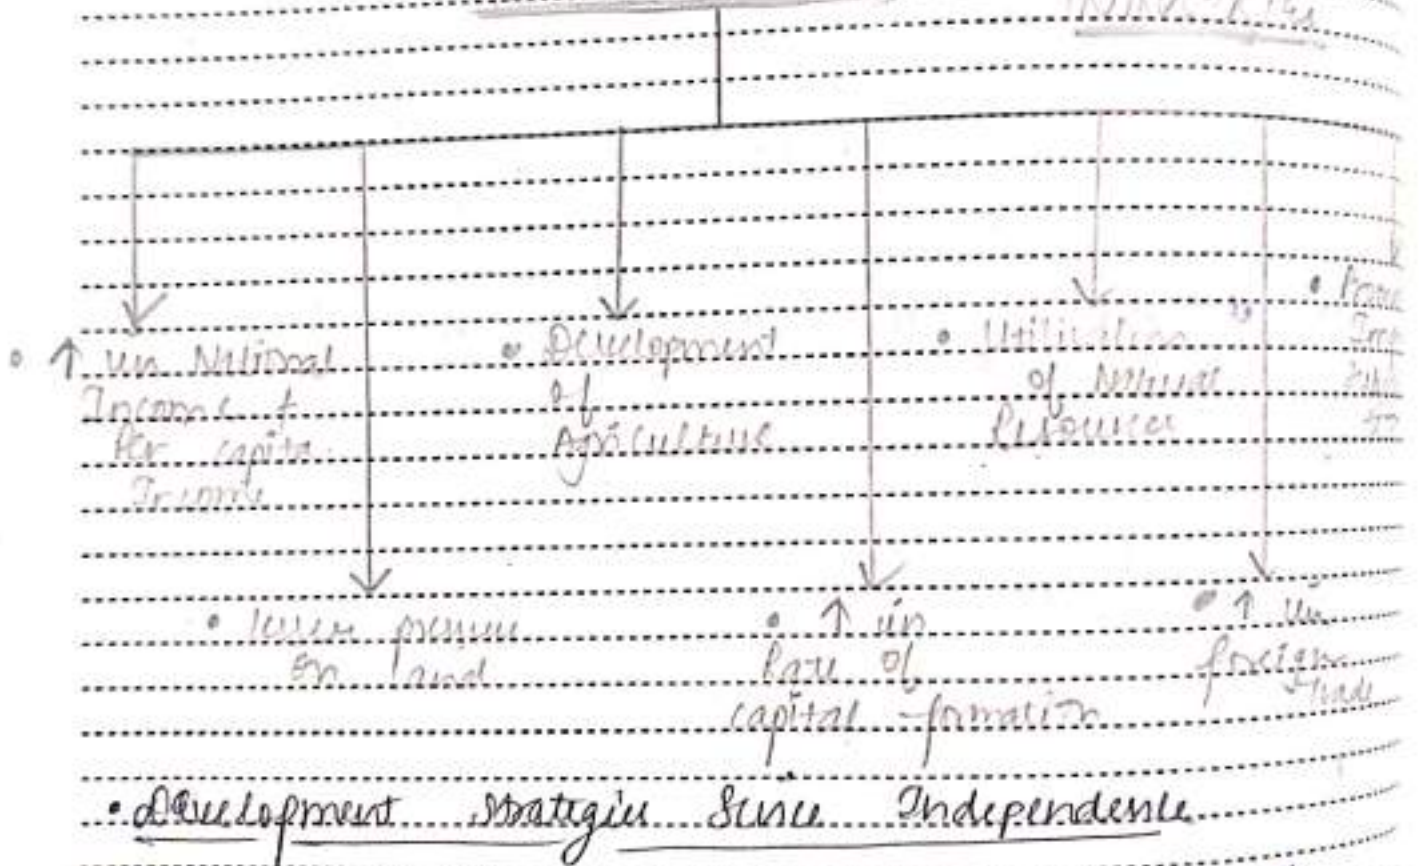 • ↑ in National
Income +
Per capita
Income
• Development
of
Agriculture
• Utilisation
of Natural
Resources
• lesser pressure
on land
• ↑ in
Rate of
capital formation
• ↑ in
foreign
trade
• Development Strategies Since Independence